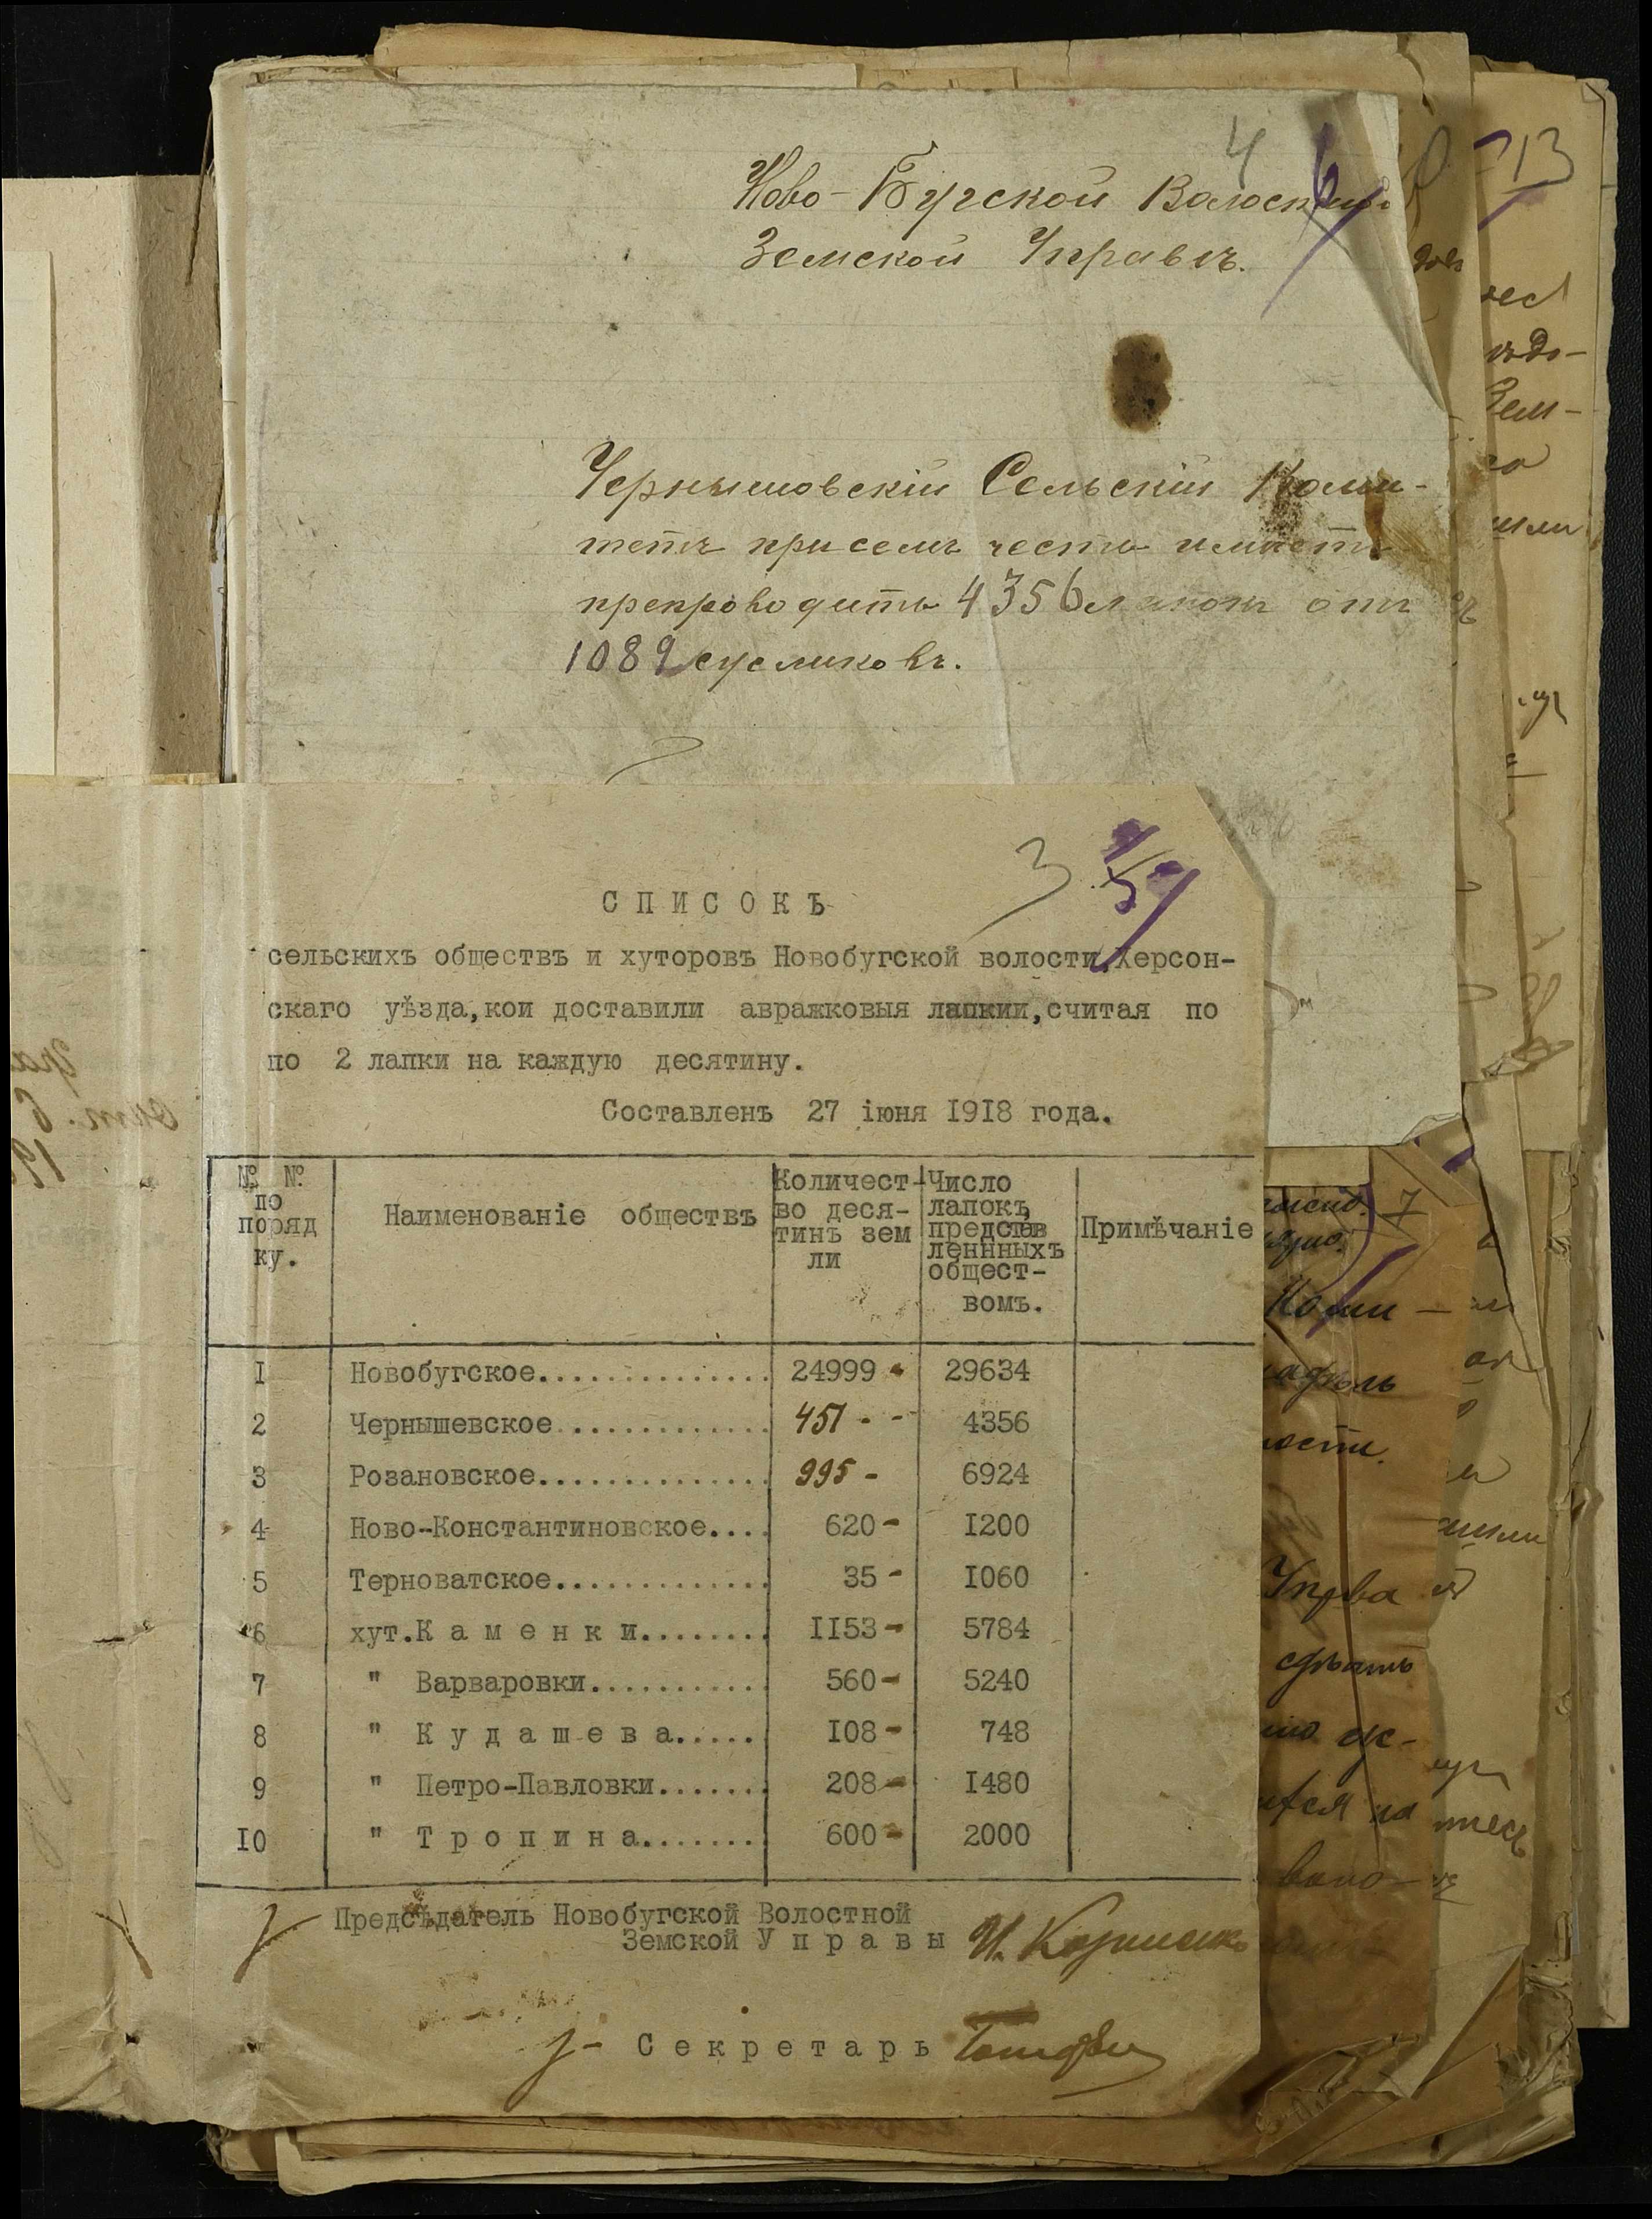 4
13
Ново-Бугской Волостной
Земской Управѣ.
Чернышовскій Сельскій Коми-
тетъ при семъ честь имѣетъ
препроводить 4356 лапокъ отъ
1089 сусликовъ.
3
СПИСОКЪ
сельскихъ обществъ и хуторовъ Новобугской волости,Херсон-
скаго уѣзда,кои доставили авражковыя лапкии,считая по
по 2 лапки на каждую десятину.
Составленъ 27 іюня 1918 года.
№ № по поряд ку.
Наименованіе обществъ
Количест-во деся-тинъ зем ли
Число лапокъ представ леннныхъ общест-вомъ.
Примѣчаніе
1 Новобугское.............. 24999 - 29634
2 Чернышевское............. 451 - - 4356
3 Розановское.............. 995 - 6924
4 Ново-Константиновское.... 620 - 1200
5 Терноватское............. 35 - 1060
6 хут.Каменки........ 1153 - 5784
7 " Варваровки........... 560 - 5240
8 " Кудашева..... 108 - 748
9 " Петро-Павловки....... 208 - 1480
10 " Тропина....... 600 - 2000
Предсѣдатель Новобугской Волостной
Земской Управы
Секретарь